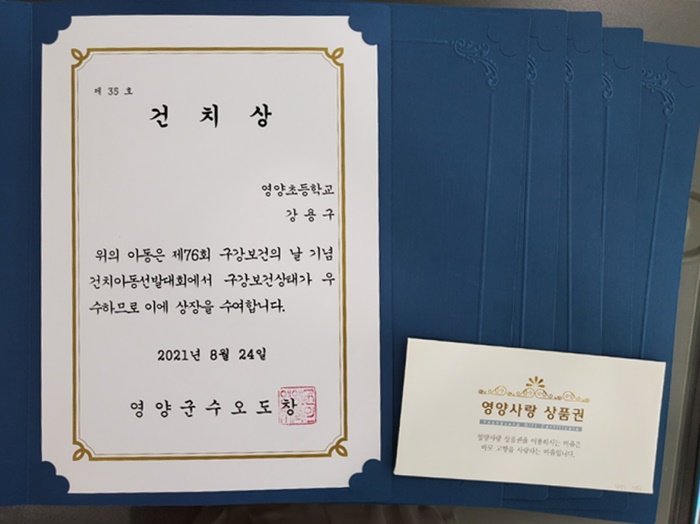 제 35 호
건 치 상
영양초등학교
강 용 구
위의 아동은 제76회 구강보건의 날 기념
건치아동선발대회에서 구강보건상태가 우
수하므로 이에 상장을 수여합니다.
2021년 8월 24일
영양군수오도창
영양사랑 상품권
Yeongyang Gift Certificate
영양사랑 상품권을 이용하시는 마음은
바로 고향을 사랑하는 마음입니다.